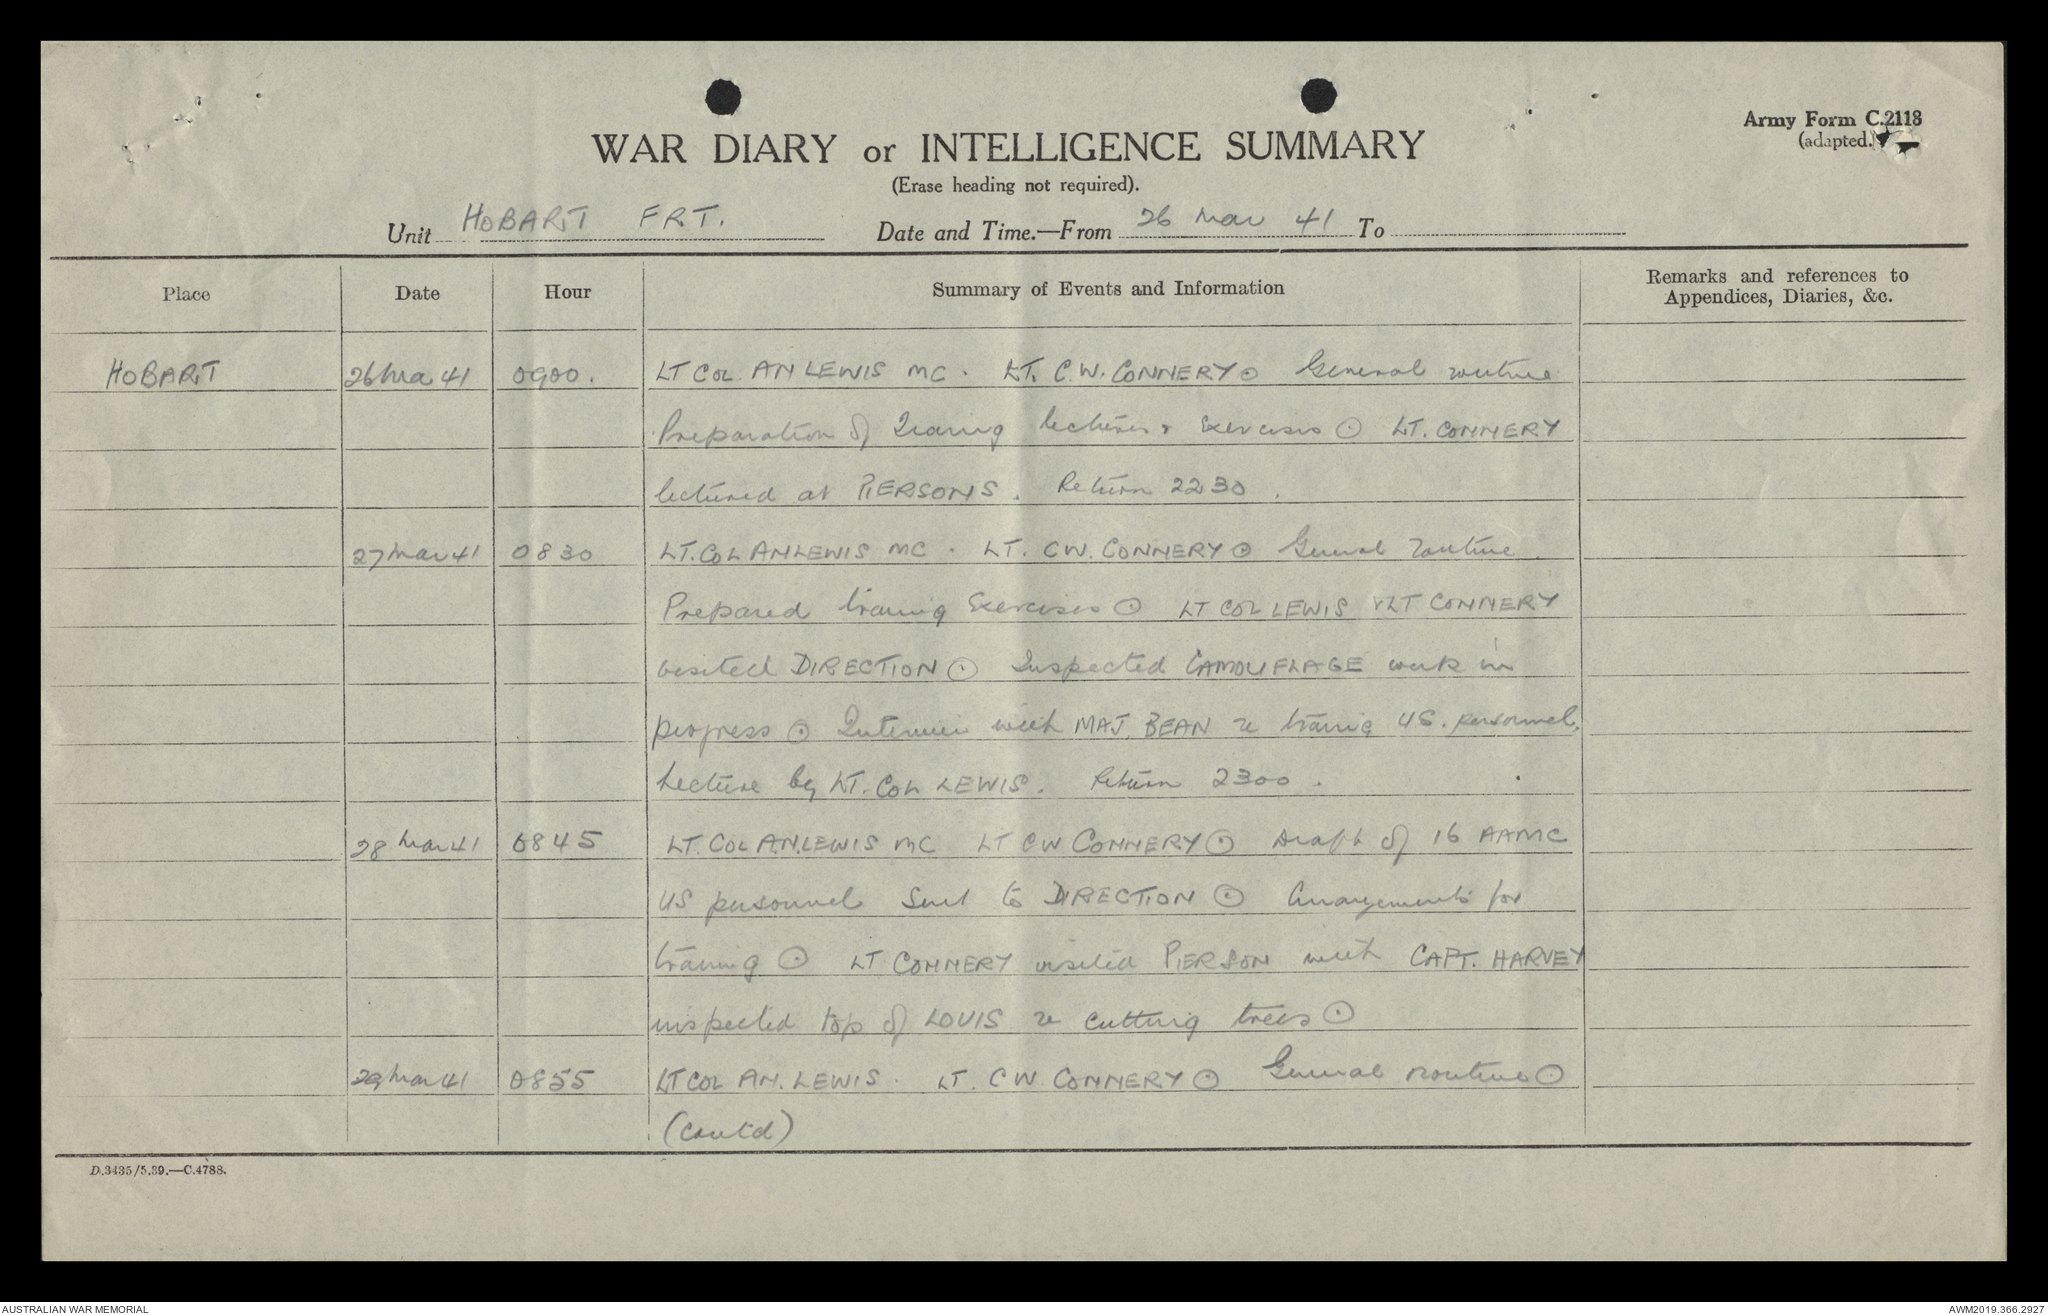 Army Form C.2118
(adapted.)
WAR DIARY or INTELLIGENCE SUMMARY
(Erase heading not required).
Unit HOBART FRT. Date and Time.—From 26 Mar 41 To
Place Date Hour Summary of Events and Information Remarks and references to Appendices, Diaries, &c.
HOBART 26 Mar 41 0900. LT COL. AN LEWIS MC. LT. C.W. CONNERY ⊙ General routine
Preparation of Training lectures & Exercises ⊙ LT. CONNERY
lectured at PIERSONS. Return 2230.
27 Mar 41 0830 LT. COL AN LEWIS MC. LT. CW. CONNERY ⊙ General Routine.
Prepared training Exercises ⊙ LT COL LEWIS & LT CONNERY
visited DIRECTION ⊙ Inspected CAMOUFLAGE work in
progress ⊙ Interview with MAJ. BEAN re training US. personnel.
Lecture by LT. COL LEWIS. Return 2300.
28 Mar 41 0845 LT. COL A.N. LEWIS MC LT CW CONNERY ⊙ Draft of 16 AAMC
US personnel Sent to DIRECTION ⊙ Arrangements for
training ⊙ LT CONNERY visited PIERSON with CAPT. HARVEY
inspected top of LOUIS re cutting trees ⊙
29 Mar 41 0855 LT COL AN. LEWIS. LT. CW. CONNERY ⊙ General routine ⊙
(contd)
D.3435/5.39.—C.4788.
AUSTRALIAN WAR MEMORIAL AWM2019.366.2927